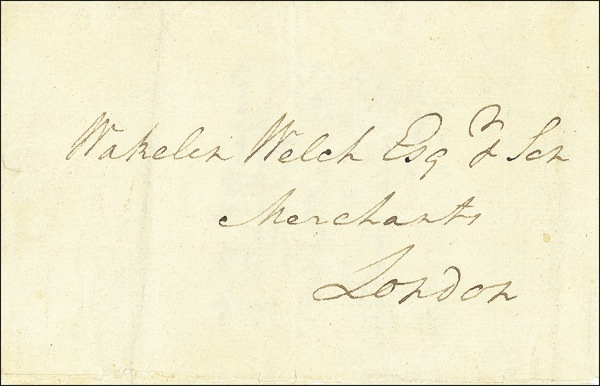 Wakelin Welch Esqr & Son
Merchants
London